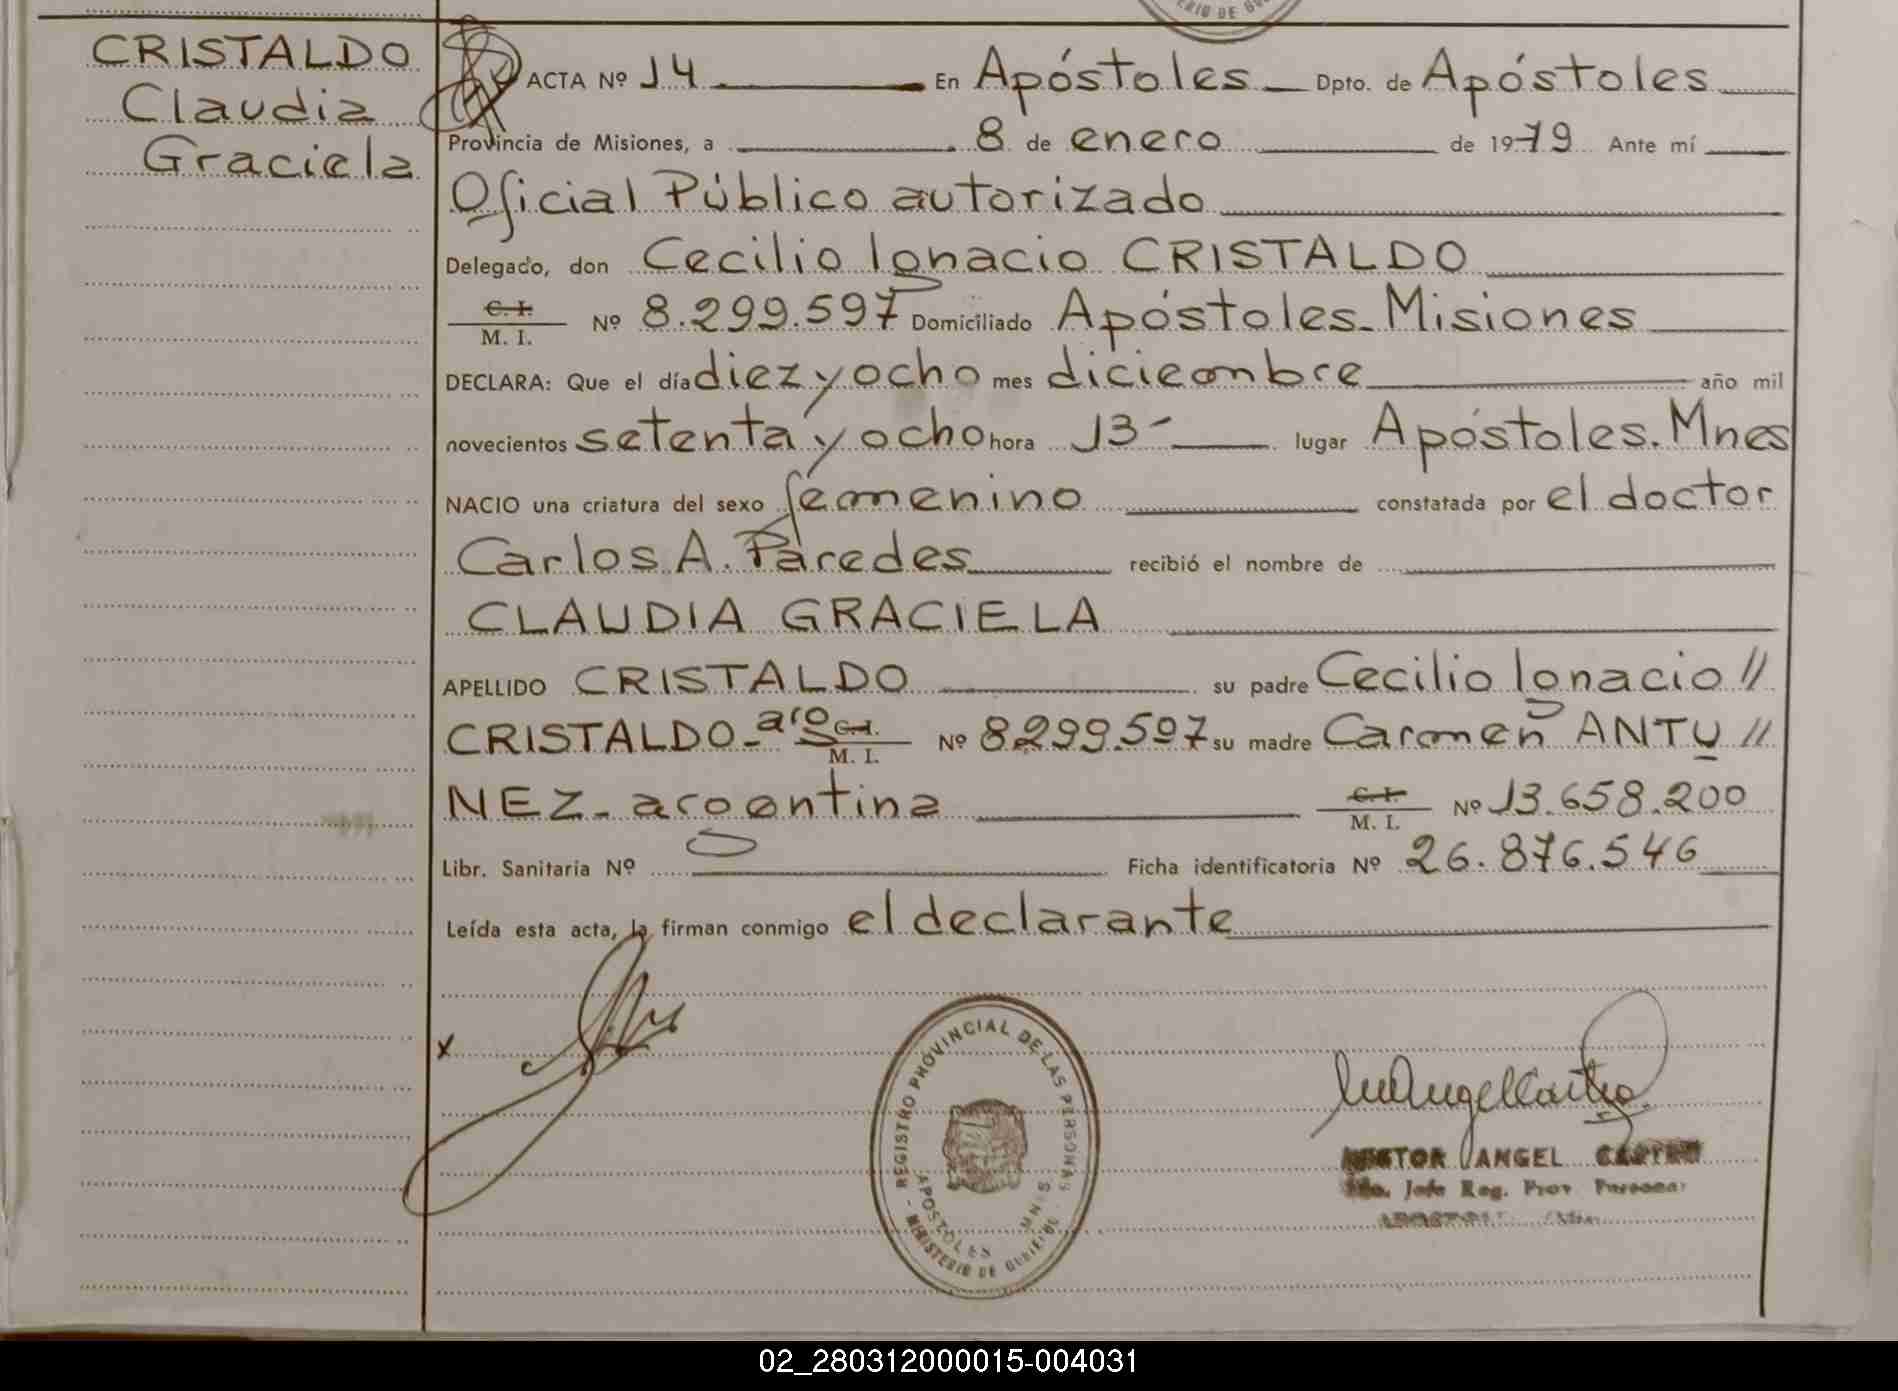 CRISTALDO
Claudia
Graciela
ACTA Nº 14 En Apóstoles Dpto. de Apóstoles
Provincia de Misiones, a 8 de enero de 1979 Ante mí
Oficial Público autorizado
Delegado, don Cecilio Ignacio CRISTALDO
C. I.
M. I. Nº 8.299.597 Domiciliado Apóstoles-Misiones
DECLARA: Que el día diez y ocho mes diciembre año mil
novecientos setenta y ocho hora 13- lugar Apóstoles. Mnes
NACIO una criatura del sexo femenino constatada por el doctor
Carlos A. Paredes recibió el nombre de
CLAUDIA GRACIELA
APELLIDO CRISTALDO su padre Cecilio Ignacio //
CRISTALDO-arg C. I.
M. I. Nº 8.299.597 su madre Carmen ANTU //
NEZ- argentina C. I.
M. I. Nº 13.658.200
Libr. Sanitaria Nº Ficha identificatoria Nº 26.876.546
Leída esta acta, la firman conmigo el declarante
x
REGISTRO PROVINCIAL DE LAS PERSONAS
APOSTOLES MNES
- MINISTERIO DE GOBIERNO -
NESTOR ANGEL CASTRO
Jefe Reg. Prov. Personas
APOSTOLES
02_280312000015-004031